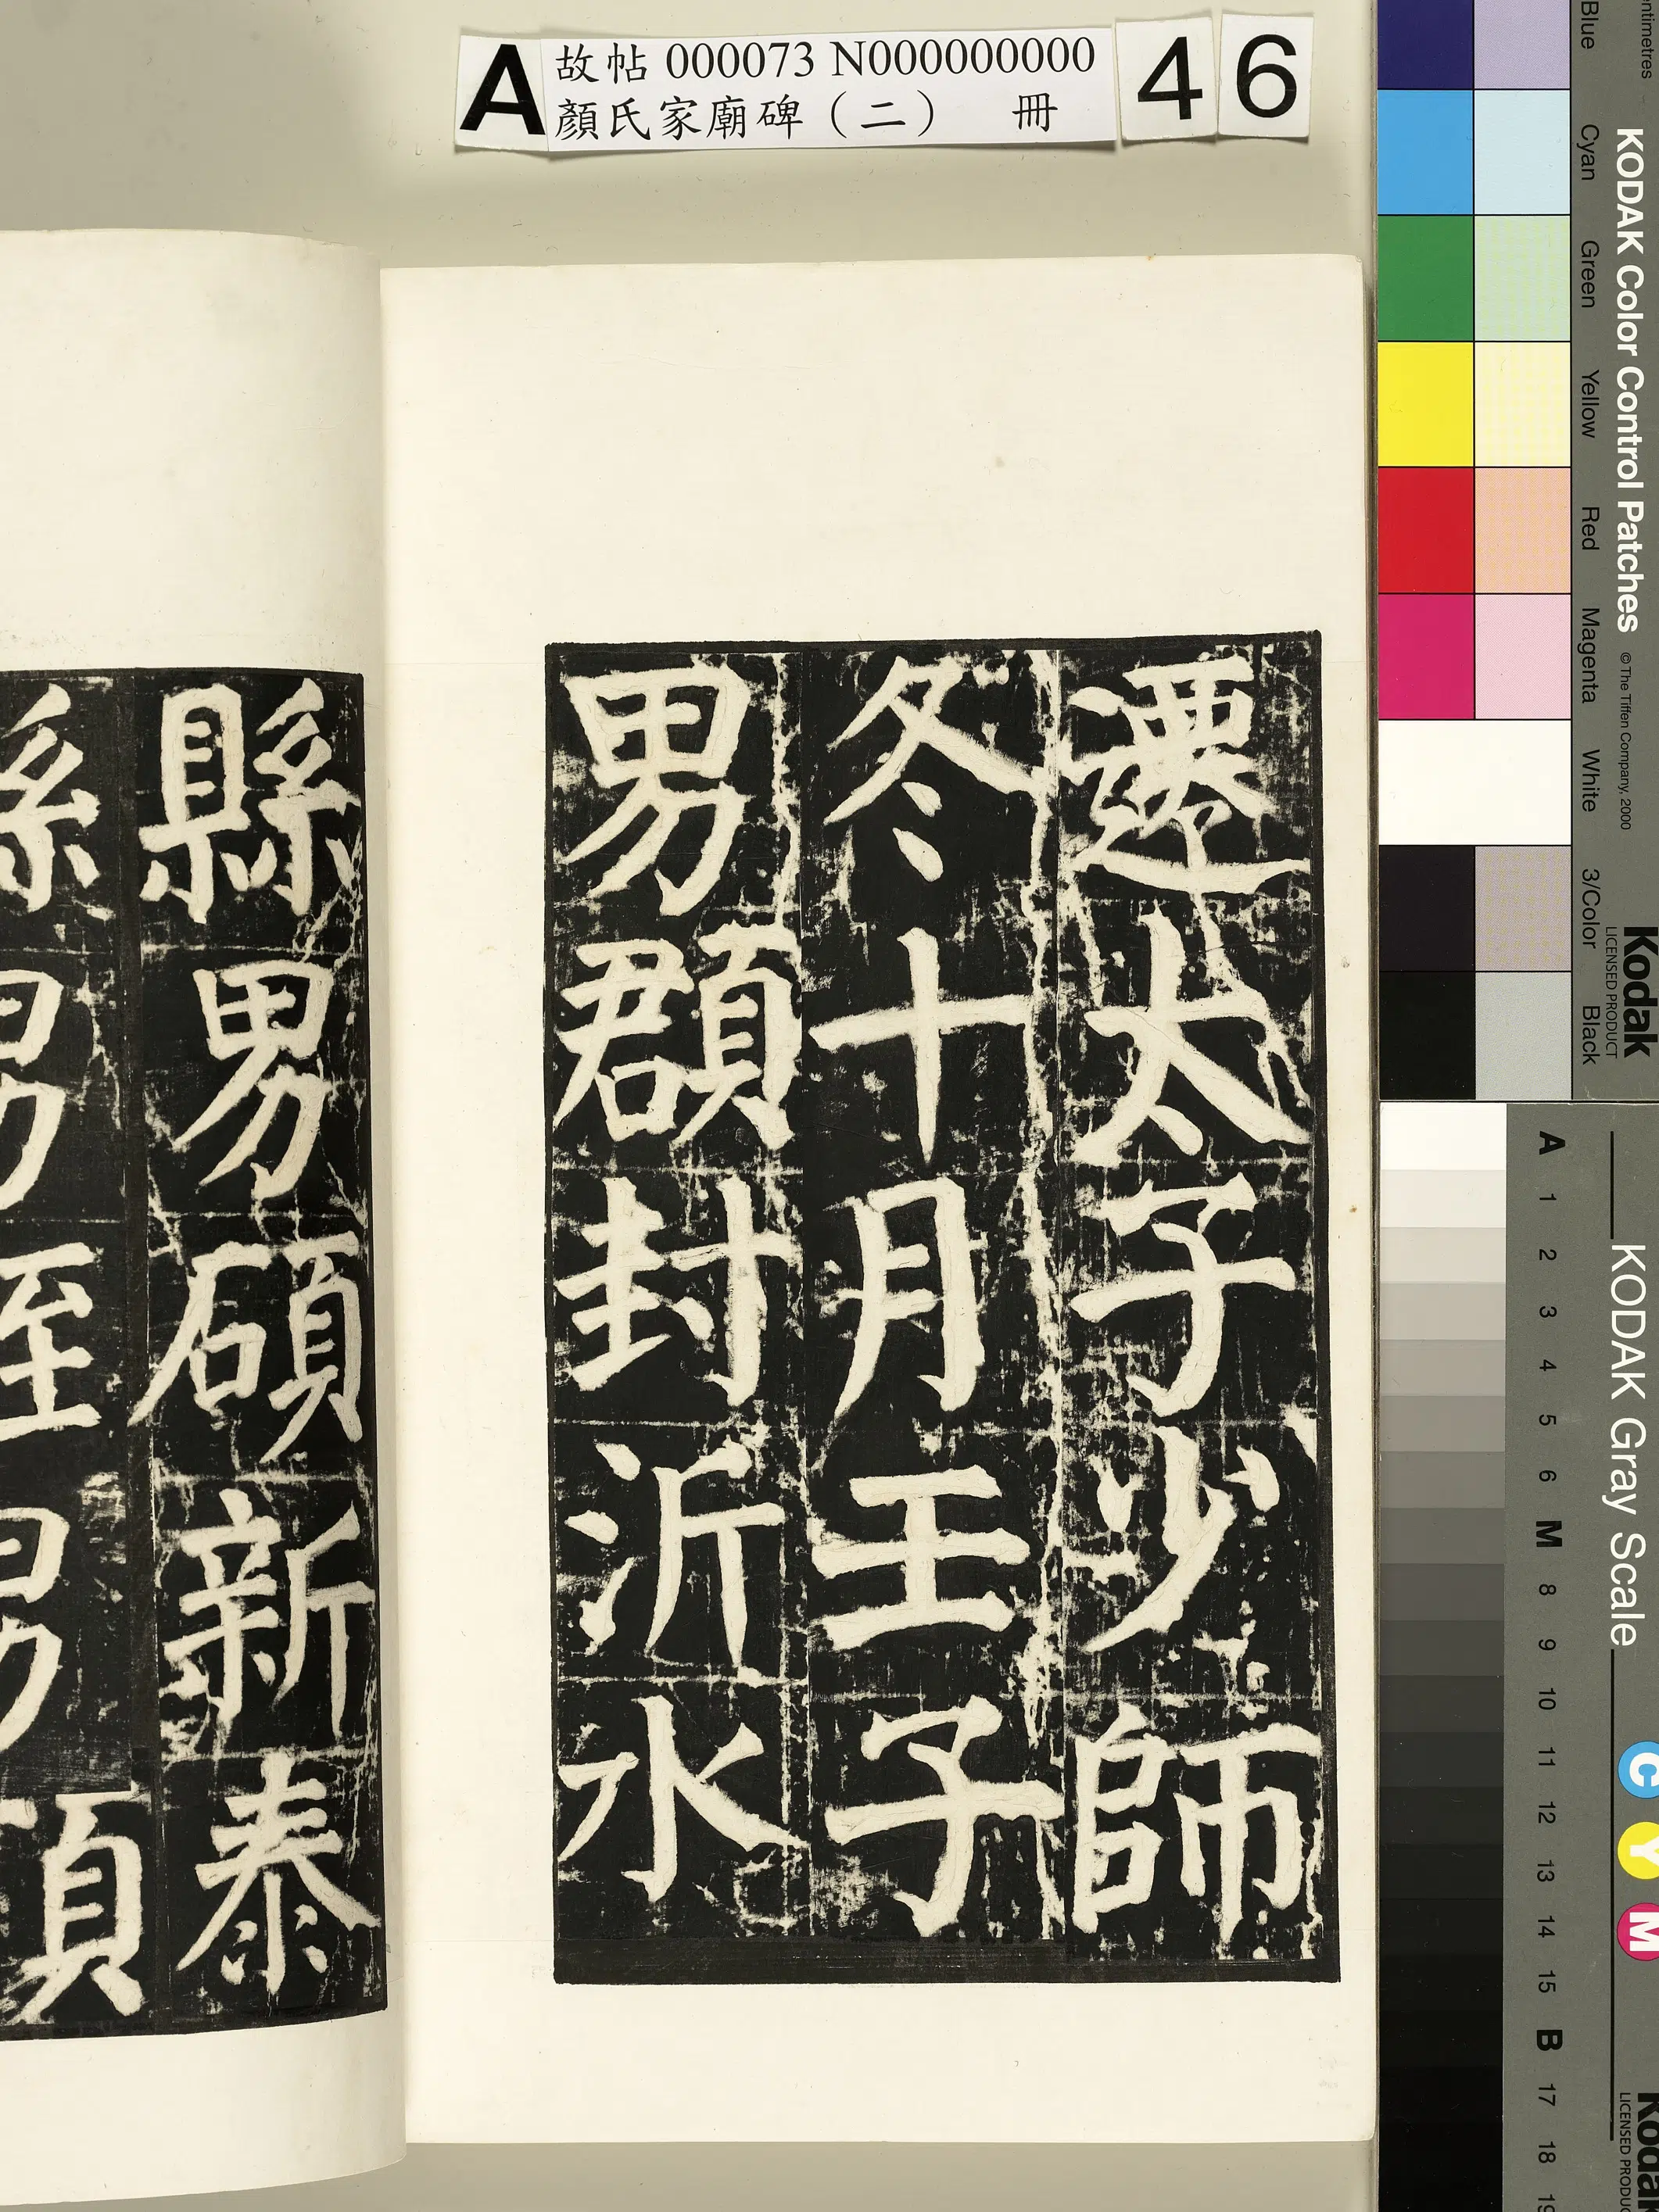 A 故帖 000073 N000000000 46
顏氏家廟碑（二） 冊
遷太子少師
冬十月壬子
男頵封沂水
縣男碩新泰
縣男姪男
Centimetres
Blue
Cyan
Green
Yellow
Red
Magenta
White
3/Color
Black
KODAK Color Control Patches ©The Tiffen Company, 2000
Kodak
LICENSED PRODUCT
KODAK Gray Scale
A 1 2 3 4 5 6 M 8 9 10 11 12 13 14 15 B 17 18 19
C Y M
Kodak
LICENSED PRODUCT